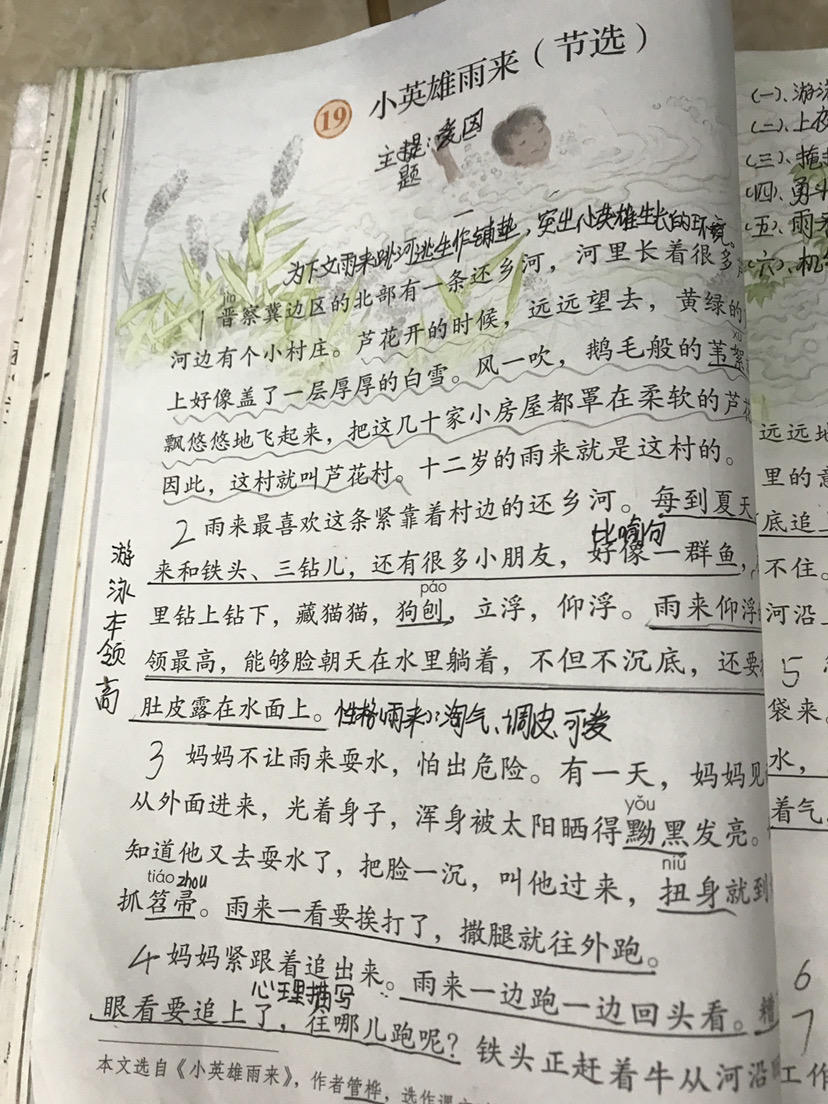 19 小英雄雨来（节选）
主提：爱国
题
一
为下文雨来跳河逃生作铺垫，突出小英雄生长的环境。
jìn
1 晋察冀边区的北部有一条还乡河，河里长着很多
河边有个小村庄。芦花开的时候，远远望去，黄绿的
xù
上好像盖了一层厚厚的白雪。风一吹，鹅毛般的苇絮
飘悠悠地飞起来，把这几十家小房屋都罩在柔软的芦花
因此，这村就叫芦花村。十二岁的雨来就是这村的。
2 雨来最喜欢这条紧靠着村边的还乡河。每到夏天
比喻句
来和铁头、三钻儿，还有很多小朋友，好像一群鱼，
páo
里钻上钻下，藏猫猫，狗刨，立浮，仰浮。雨来仰浮
领最高，能够脸朝天在水里躺着，不但不沉底，还要
肚皮露在水面上。性格（雨来）：淘气、调皮、可爱
游泳本领高
3 妈妈不让雨来耍水，怕出危险。有一天，妈妈见
从外面进来，光着身子，浑身被太阳晒得黝黑发亮。
yǒu
知道他又去耍水了，把脸一沉，叫他过来，扭身就到
niǔ
tiáo zhou
抓笤帚。雨来一看要挨打了，撒腿就往外跑。
4 妈妈紧跟着追出来。雨来一边跑一边回头看。糟
心理描写
眼看要追上了，往哪儿跑呢？铁头正赶着牛从河沿
本文选自《小英雄雨来》，作者管桦，选作课文
(一)、游泳
(二)、上夜
(三)、掩
(四)、勇斗
(五)、雨来
(六)、机
远远地
里的意
底追上
不住。
河沿上
5
袋来。
水，
着气，
6
7
工作